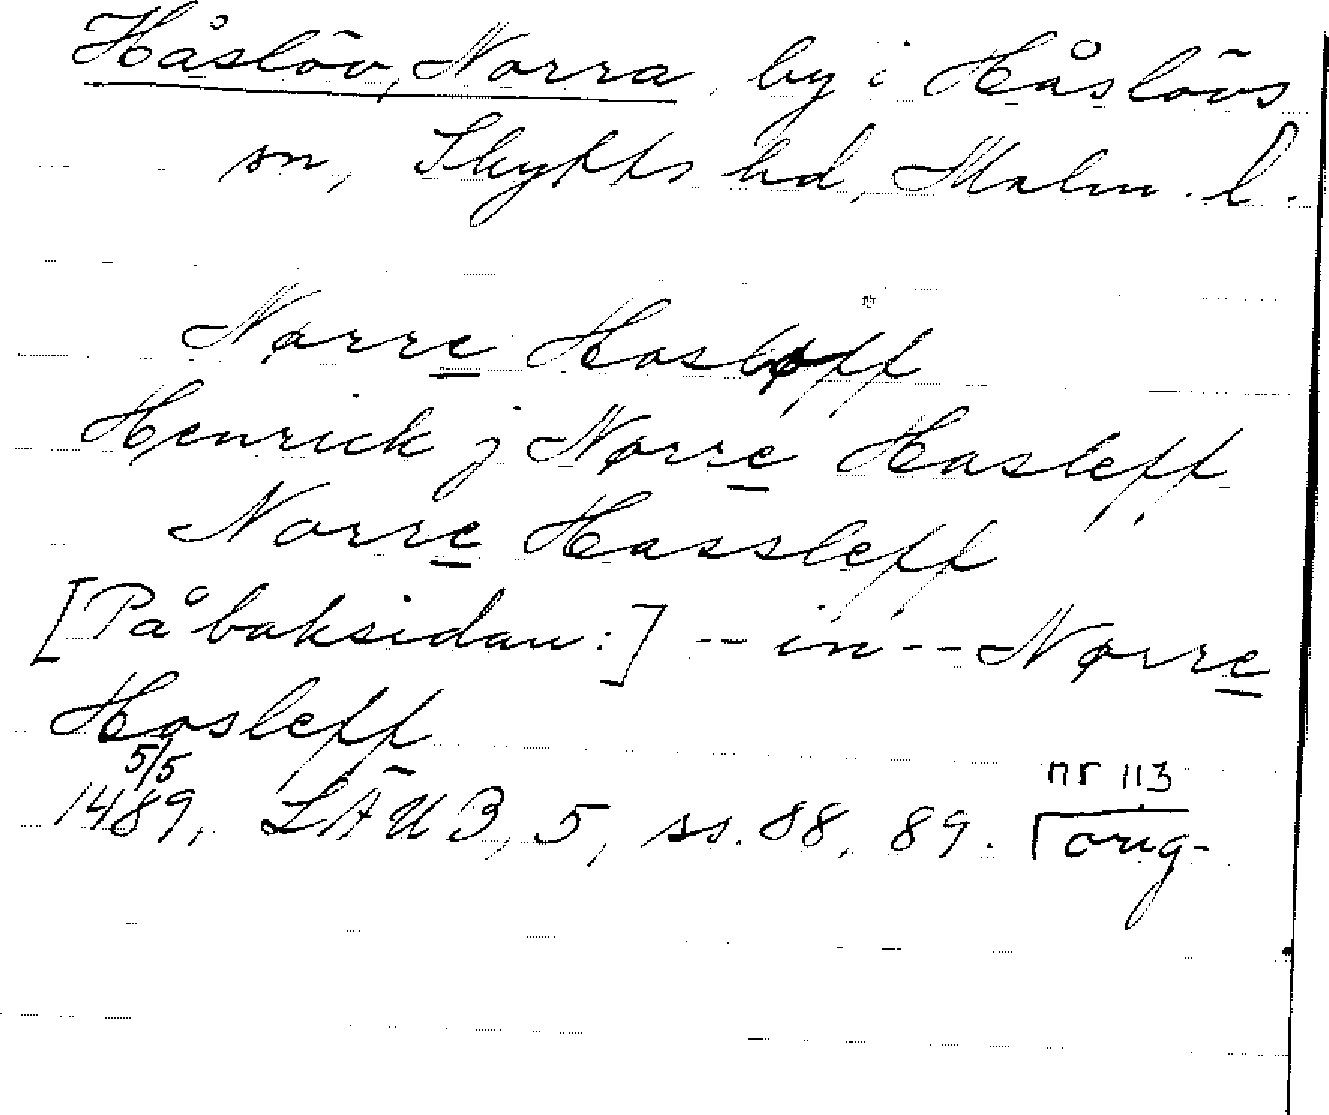 Håslöv, Norra, by i Håslövs
sn, Skytts hd, Malm. l.
Nørre Hasløff
Henrick j Nørre Hasleff
Norre Hassleff
[På baksidan:] -- in -- Nørre
Hasleff
5/5
1489, LÄUB, 5, ss. 88, 89. nr 113
orig.